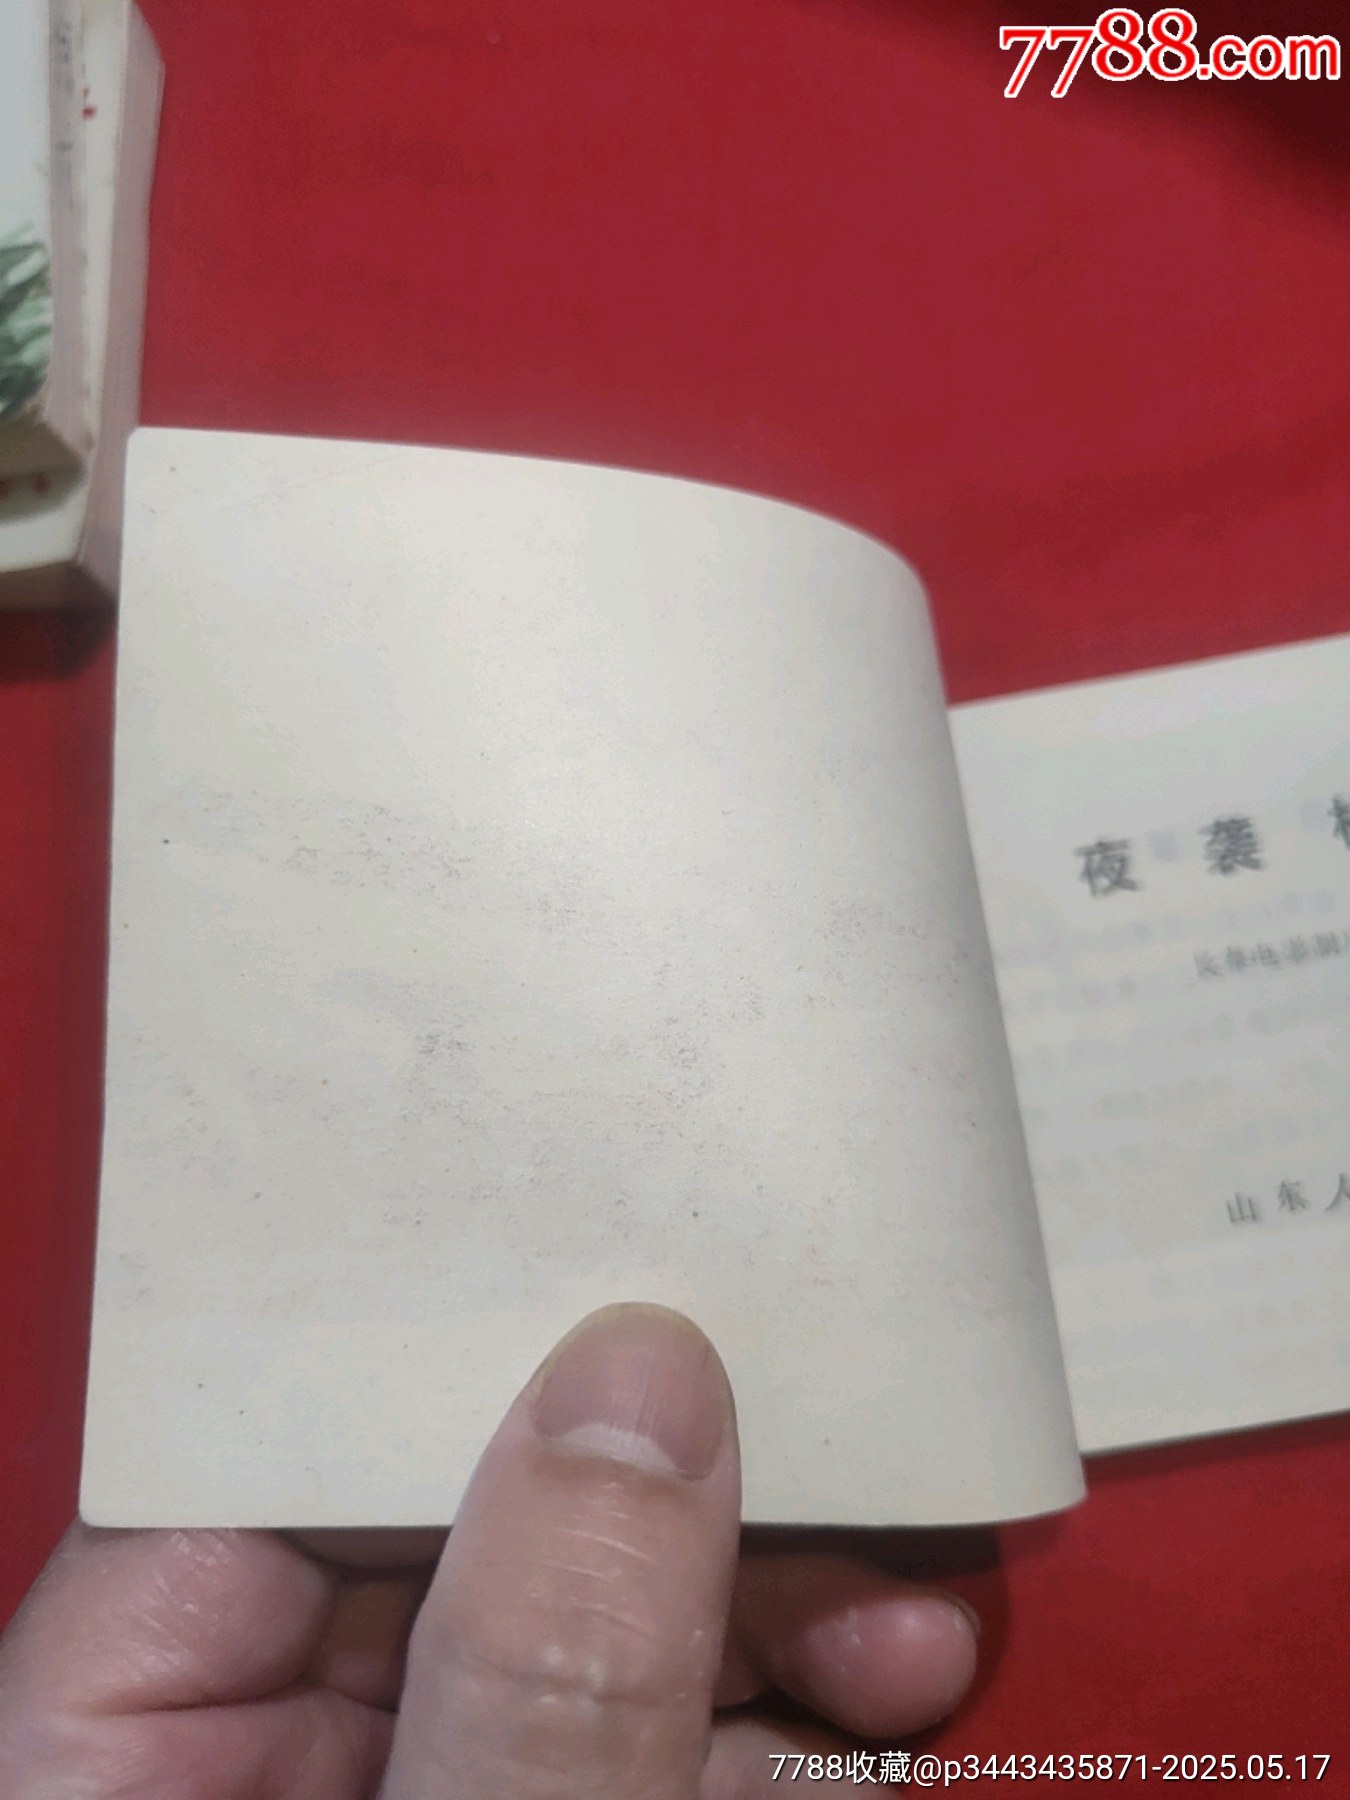 7788.com
夜袭
长春电影制
山东人
7788收藏@p3443435871-2025.05.17